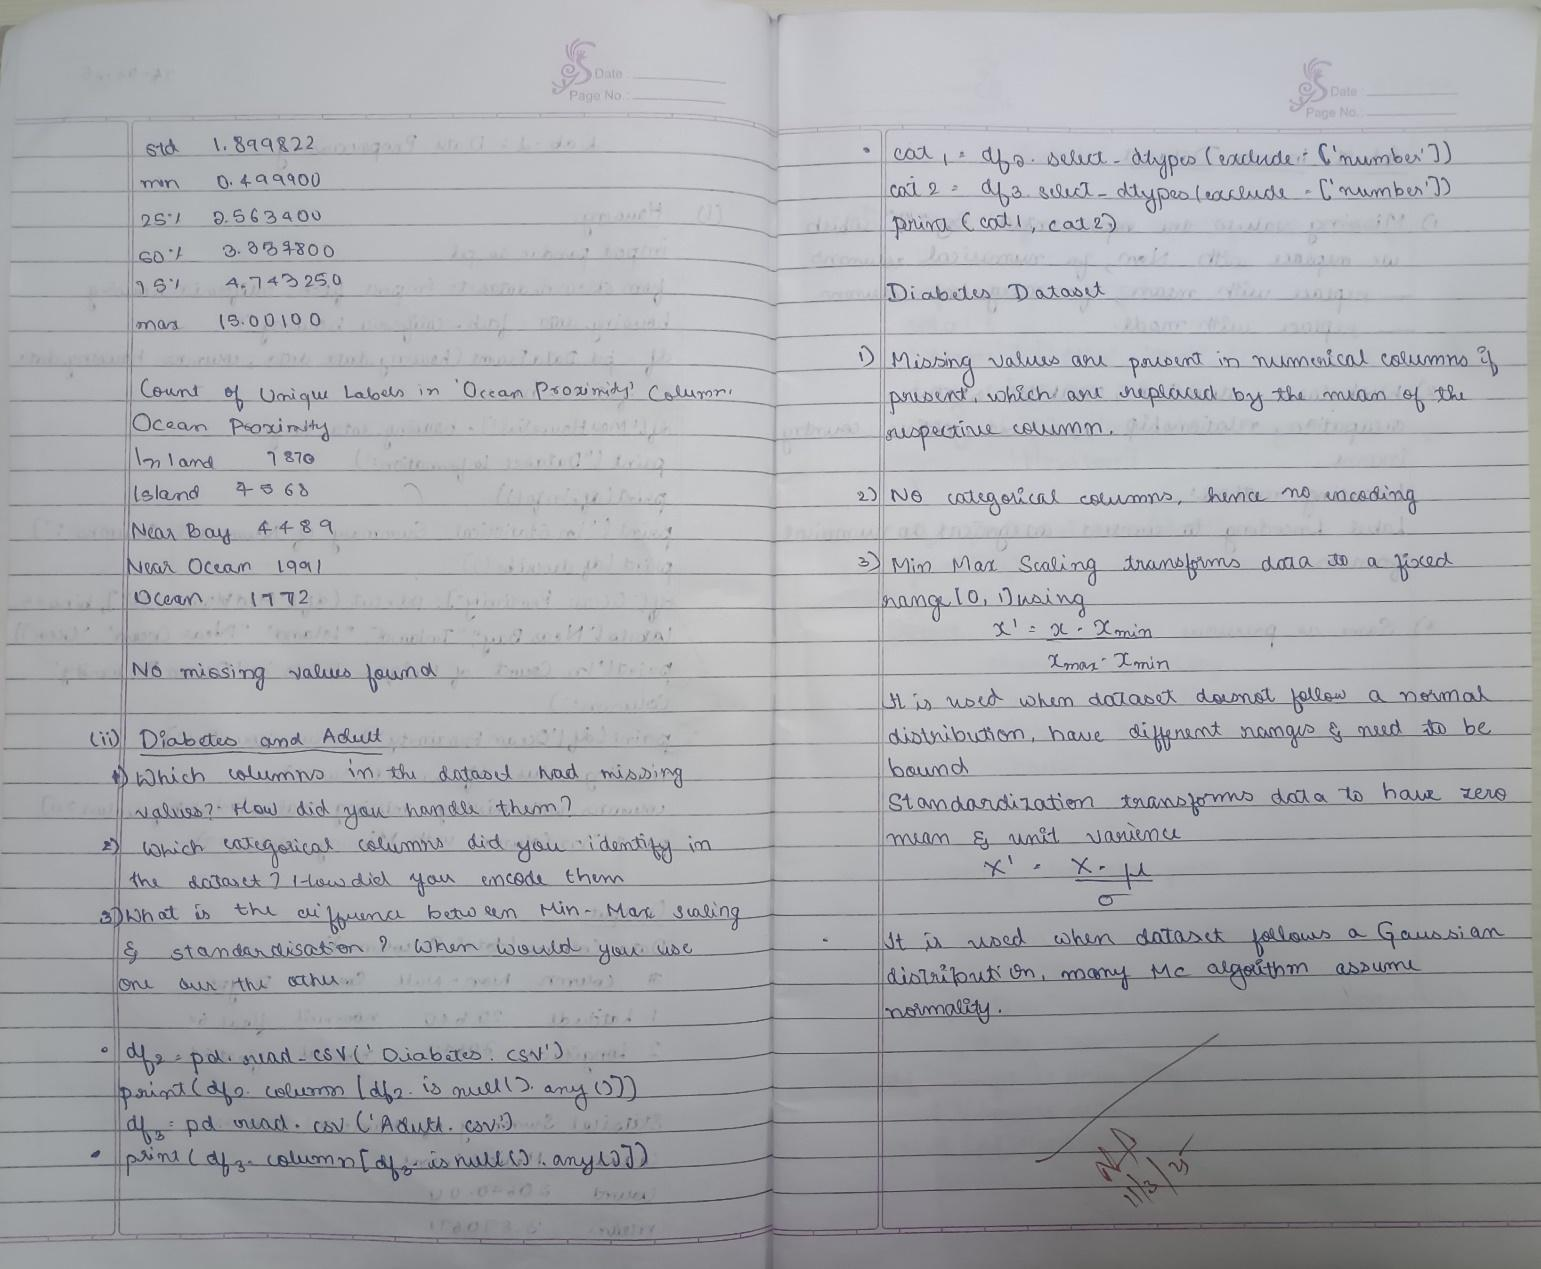 Date :
Page No. :
std 1.899822
min 0.499900
25% 2.563400
50% 3.537800
75% 4.743250
max 15.00100
Count of Unique Labels in 'Ocean Proximity' Column:
Ocean Proximity
Inland 7870
Island 4568
Near Bay 4489
Near Ocean 1991
Ocean 1772
No missing values found
(ii) Diabetes and Adult
1) Which columns in the dataset had missing
values? How did you handle them?
2) Which categorical columns did you identify in
the dataset? How did you encode them
3) What is the difference between Min-Max scaling
& standardisation? When would you use
one over the other.
df2 = pd.read_csv('Diabetes.csv')
print(df2.column[df2.isnull().any()])
df3 = pd read.csv ('Adult.csv')
print(df3.column[df3.isnull().any()])
Date :
Page No. :
cat1 = df2.select_dtypes(exclude=['number'])
cat2 = df3.select_dtypes(exclude=['number'])
print(cat1, cat2)
Diabetes Dataset
1) Missing values are present in numerical columns if
present, which are replaced by the mean of the
respective column.
2) No categorical columns, hence no encoding
3) Min Max Scaling transforms data to a fixed
range [0,1] using
x' = x - xmin
xmax - xmin
It is used when dataset doesnot follow a normal
distribution, have different ranges & need to be
bound
Standardization transforms data to have zero
mean & unit varience
x' = x - μ
σ
It is used when dataset follows a Gaussian
distribution, many Mc algorithm assume
normality.
11/3/25